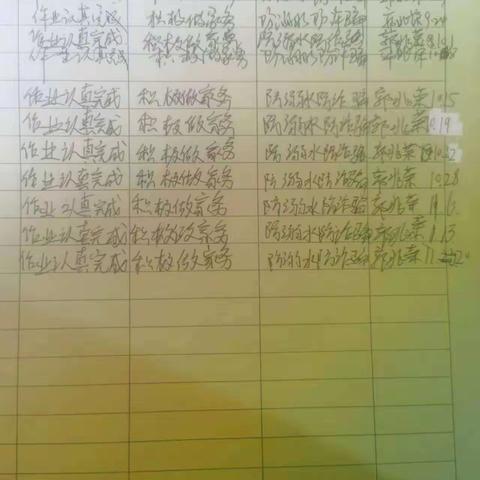 作业认真完成 积极做家务 防溺水防诈骗
作业认真完成 积极做家务 防溺水防诈骗
作业认真完成 积极做家务 防溺水防诈骗
作业认真完成 积极做家务 防溺水防诈骗 郭兆荣 10.15
作业认真完成 积极做家务 防溺水防诈骗 郭兆荣 10.19
作业认真完成 积极做家务 防溺水防诈骗 郭兆荣
作业认真完成 积极做家务 防溺水防诈骗 郭兆荣 10.28
作业认真完成 积极做家务 防溺水防诈骗 郭兆荣 11.6
作业认真完成 积极做家务 防溺水防诈骗 郭兆荣 11.13
作业认真完成 积极做家务 防溺水防诈骗 郭兆荣